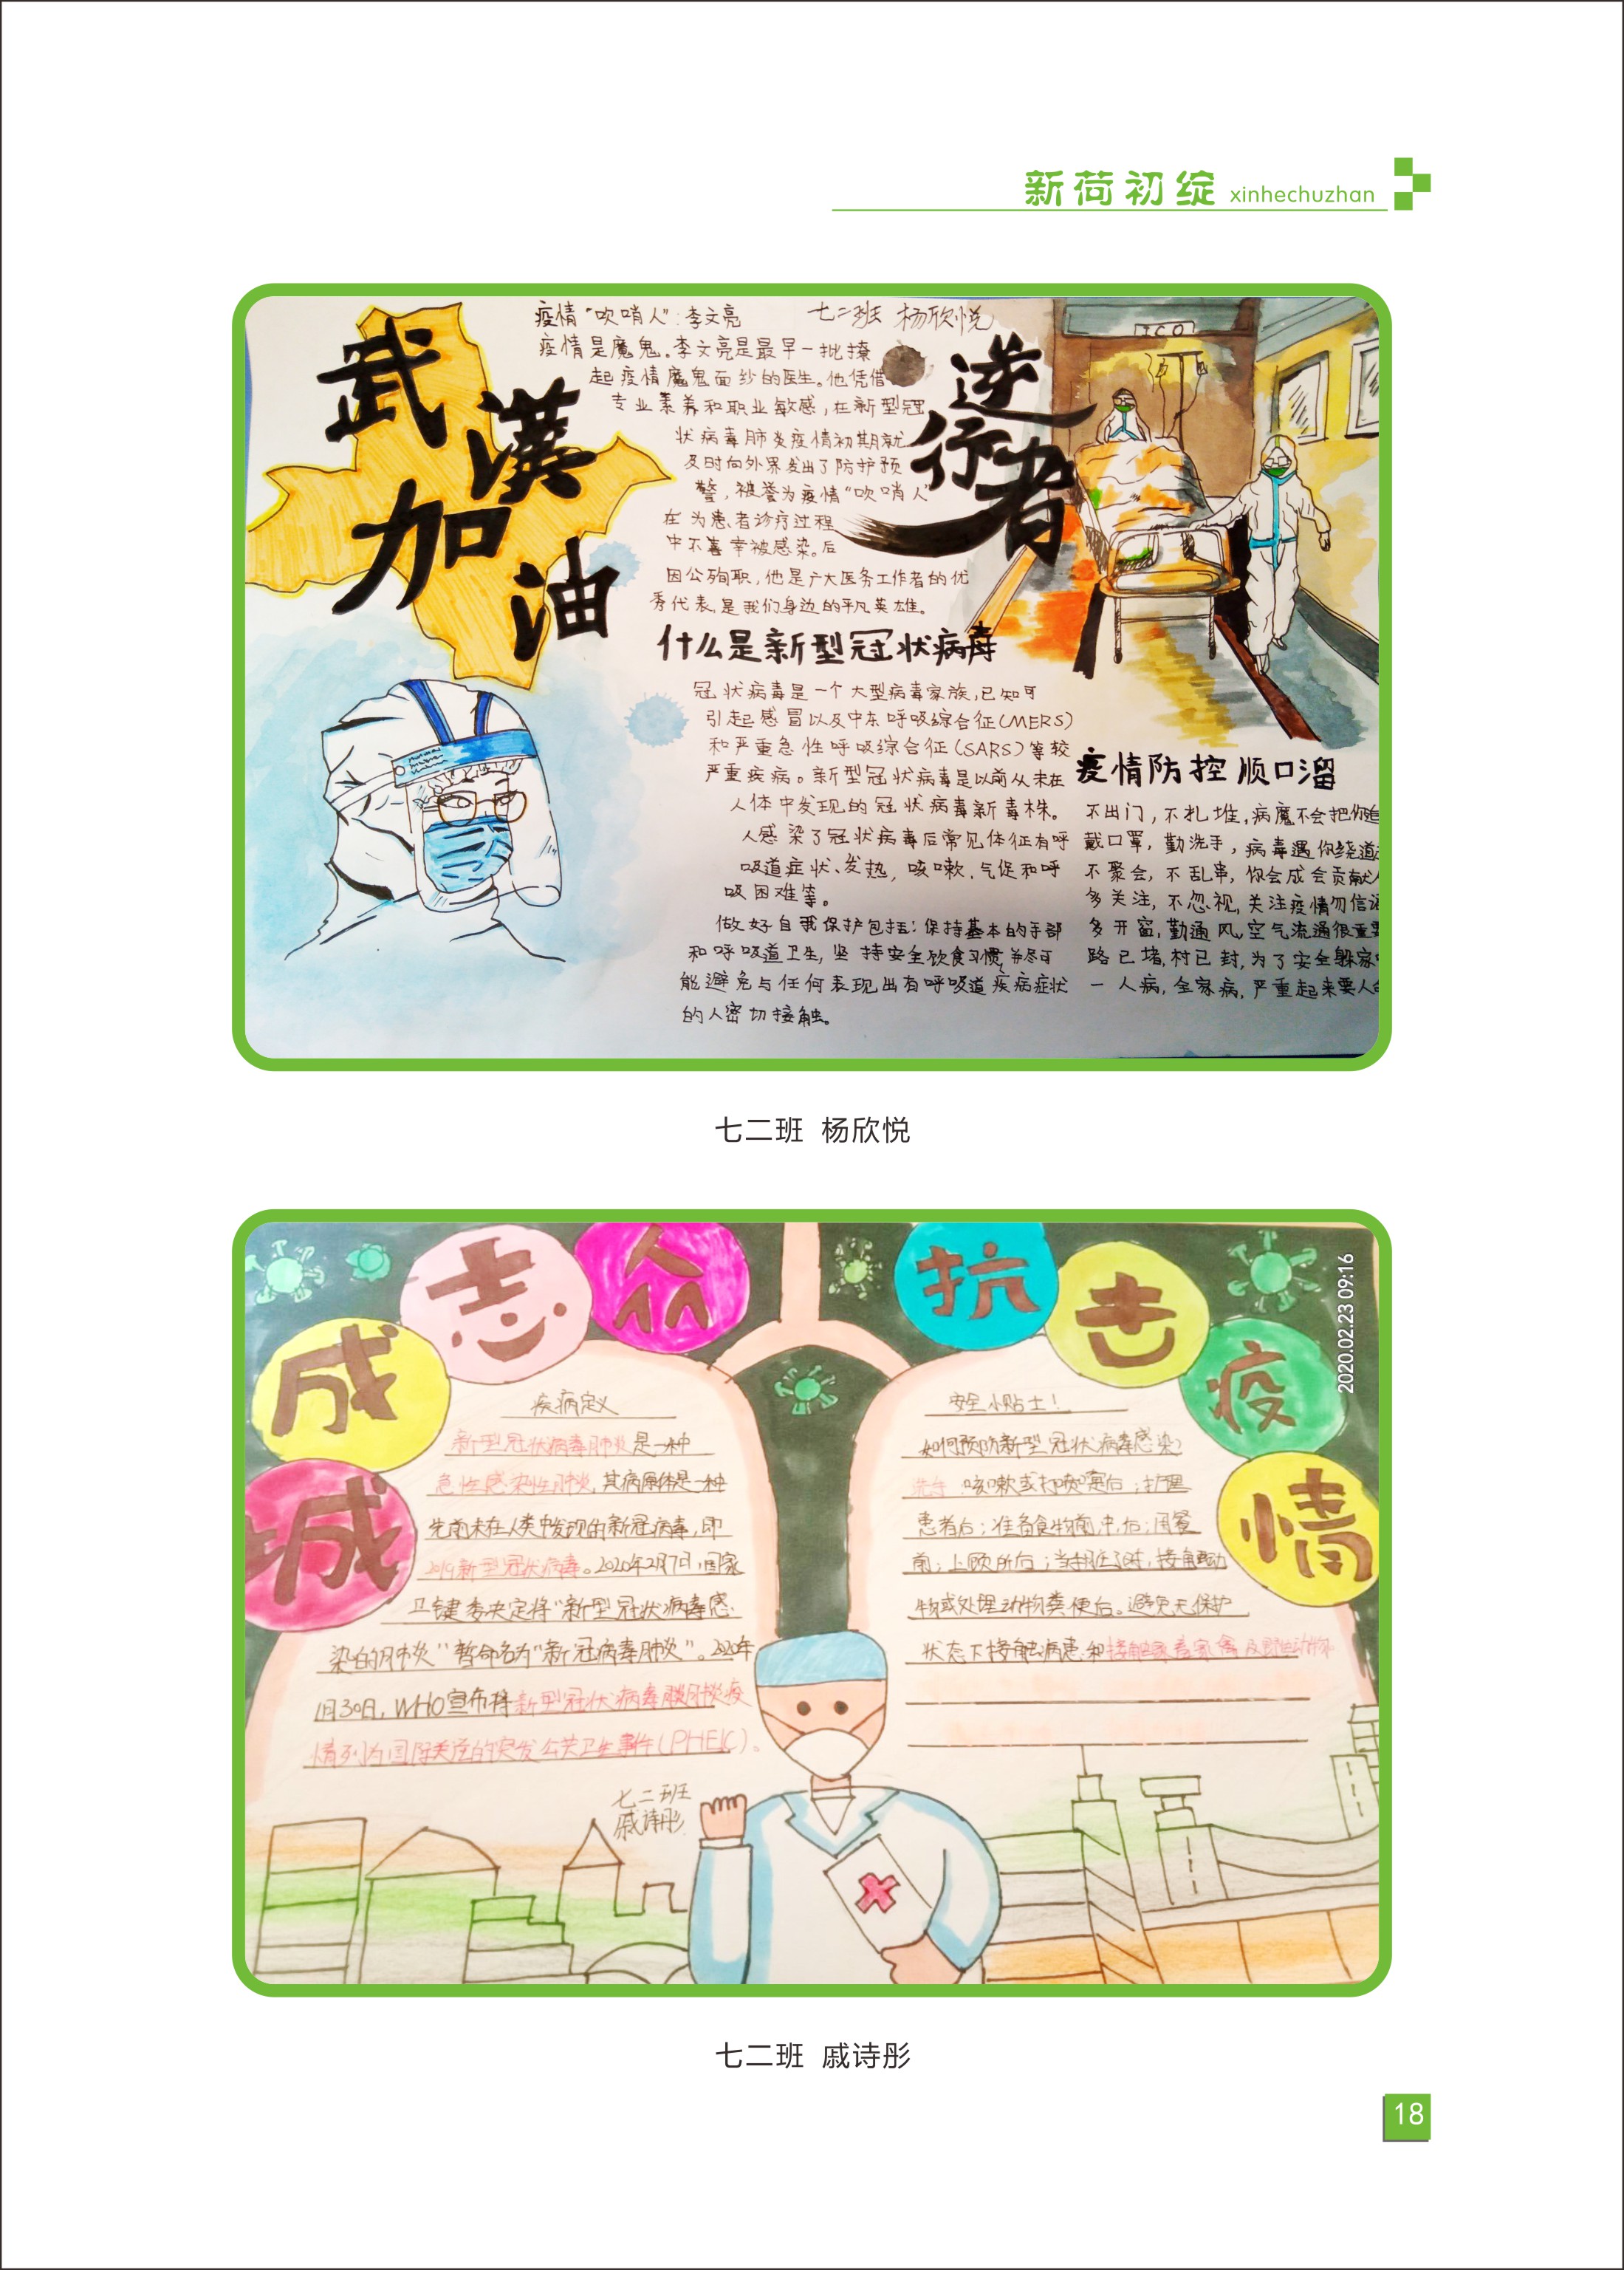 新荷初绽 xinhechuzhan
武漢
加油
疫情“吹哨人”:李文亮
七二班 杨欣悦
疫情是魔鬼。李文亮是最早一批撩
起疫情魔鬼面纱的医生。他凭借
专业素养和职业敏感,在新型冠
状病毒肺炎疫情初期就
及时向外界发出了防护预
警,被誉为疫情“吹哨人”
在为患者诊疗过程
中不幸被感染。后
因公殉职,他是广大医务工作者的优
秀代表,是我们身边的平凡英雄。
逆行者
ICO
什么是新型冠状病毒
冠状病毒是一个大型病毒家族,已知可
引起感冒以及中东呼吸综合征(MERS)
和严重急性呼吸综合征(SARS)等较
严重疾病。新型冠状病毒是以前从未在
人体中发现的冠状病毒新毒株。
人感染了冠状病毒后常见体征有呼
吸道症状、发热,咳嗽,气促和呼
吸困难等。
做好自我保护包括:保持基本的手部
和呼吸道卫生,坚持安全饮食习惯,并尽可
能避免与任何表现出有呼吸道疾病症状
的人密切接触。
疫情防控顺口溜
不出门,不扎堆,病魔不会把你追
戴口罩,勤洗手,病毒遇你绕道
不聚会,不乱串,你会成会贡献人
多关注,不忽视,关注疫情勿信谣
多开窗,勤通风,空气流通很重要
路已堵,村已封,为了安全躲家中
一人病,全家病,严重起来要人命
七二班 杨欣悦
城成志众
抗击疫情
2020.02.23 09:16
疾病定义
新型冠状病毒肺炎是一种
急性感染性肺炎,其病原体是一种
先前未在人类中发现的新冠病毒,即
2019新型冠状病毒。2020年2月7日,国家
卫健委决定将“新型冠状病毒感
染的肺炎”暂命名为“新冠病毒肺炎”。2020年
1月30日,WHO宣布将新型冠状病毒肺炎疫
情列为国际关注的突发公共卫生事件(PHEIC)。
七二班
戚诗彤
安全小贴士!
如何预防新型冠状病毒感染?
洗手:咳嗽或打喷嚏后;护理
患者后;准备食物前,中,后;用餐
前;上厕所后;当手脏了时,接触动
物或处理动物粪便后。避免无保护
状态下接触病患和接触家畜家禽及野生动物
七二班 戚诗彤
18